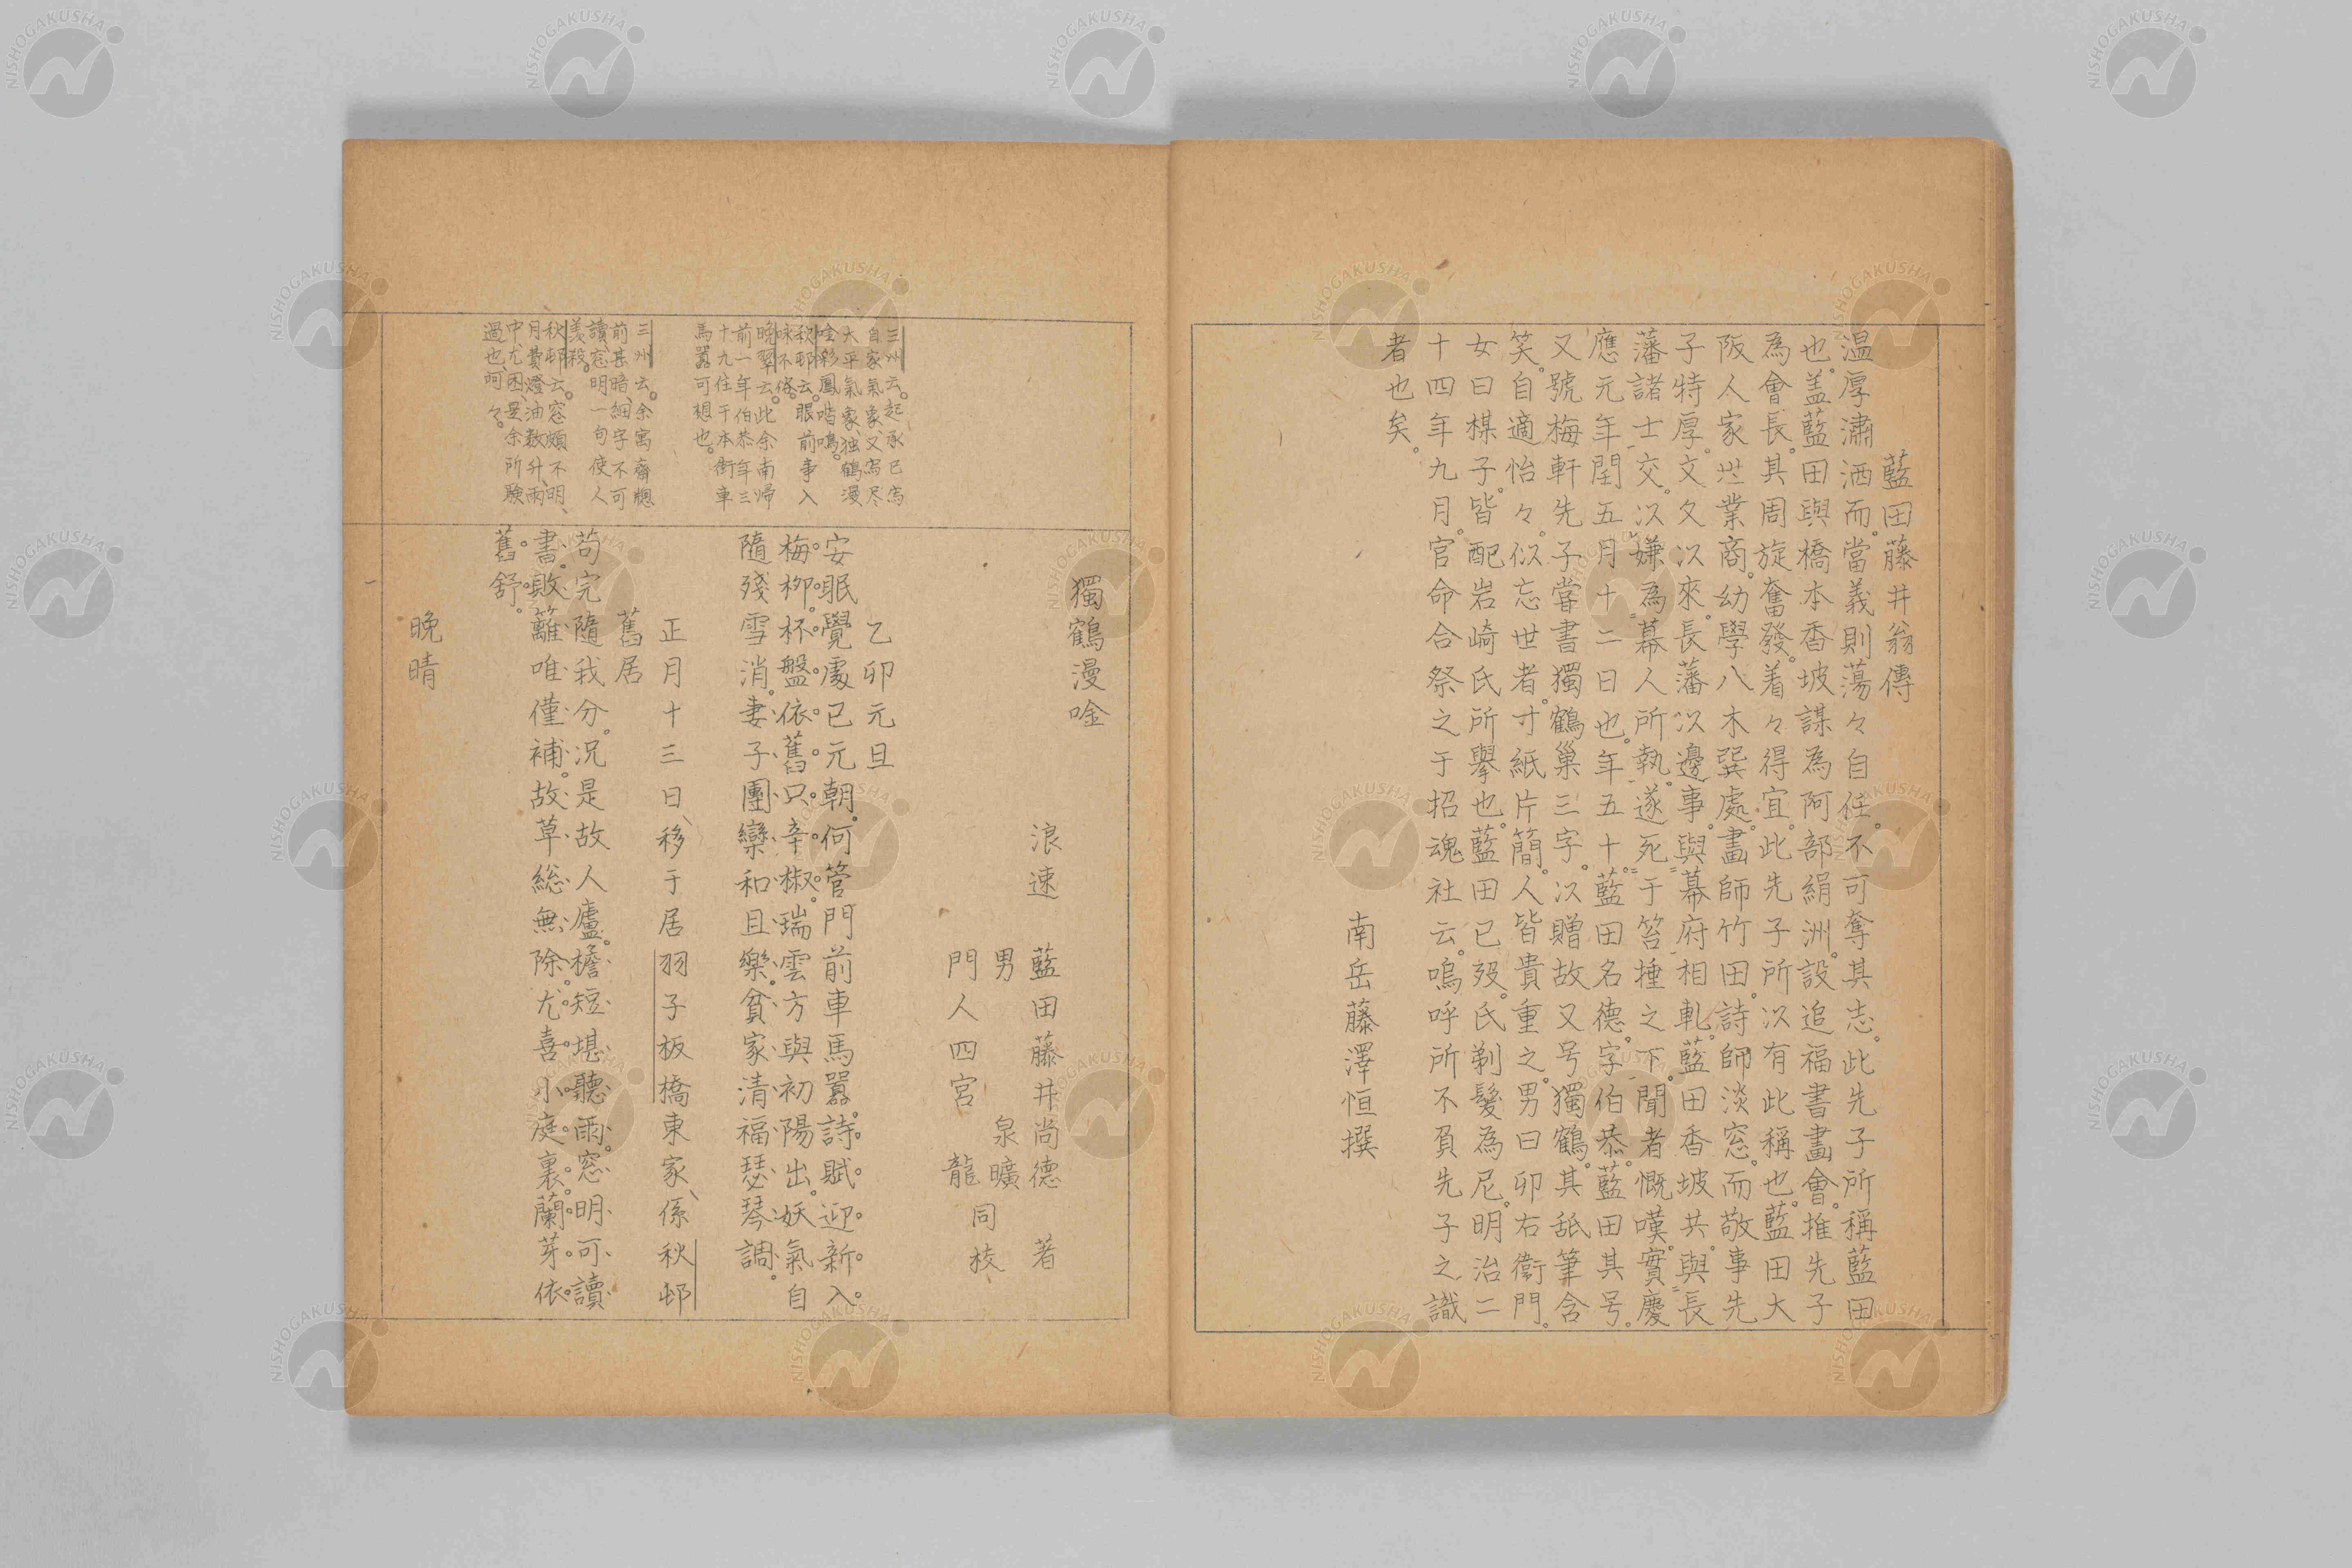 藍田藤井翁傳
温厚瀟洒而當義則蕩々自任。不可奪其志。此先子所稱藍田
也。盖藍田與橋本香坡謀為阿部絹洲。設追福書畫會。推先子
為會長。其周旋奮發。着々得宜。此先子所以有此稱也。藍田大
阪人家世業商。幼學八木巽處。畫師竹田。詩師淡窓。而敬事先
子特厚。文久以來。長藩以邊事。與幕府相軋。藍田香坡共與長
藩諸士交。以嫌為幕人所執。遂死于笞捶之下。聞者慨嘆。實慶
應元年閏五月十二日也。年五十。藍田名德。字伯恭。藍田其号。
又號梅軒先子嘗書獨鶴巢三字。以贈故又号獨鶴。其舐筆含
笑。自適怡々。似忘世者。寸紙片簡。人皆貴重之。男曰卯右衛門。
女曰楳子。皆配岩崎氏所擧也。藍田已歿。氏剃髮為尼。明治二
十四年九月。官命合祭之于招魂社云。嗚呼所不負先子之識
者也矣。
南岳藤澤恒撰
獨鶴漫唫
浪速 藍田藤井尚德 著
男 泉曠
門人四宮 龍
同校
乙卯元旦
安眠覺處已元朝。何管門前車馬囂。詩賦迎新入
梅柳。杯盤依舊只辛椒。瑞雲方與初陽出。妖氣自
隨殘雪消。妻子團欒和且樂。貧家清福瑟琴調。
正月十三日、移于居羽子板橋東家、係秋邨
舊居
苟完隨我分。况是故人廬。檐短堪聽雨。窓明可讀
書。敗籬唯僅補。故草総無除。尤喜小庭裏。蘭芽依
舊舒。
晩晴
三州云。起承已寫
自家氣象、又寫尽
大平氣象、独鶴漫
唫彩鳳喈鳴。
秋邨云。眼前事入
咏不俗。
晩翠云。此余南帰
前一年伯恭年三
十九住于本街車
馬囂可想也。
三州云。余寓齋牕
前甚暗、細字不可
讀、窓明一句使人
羨殺。
秋邨云。窓頗不明、
月費燈油数升、雨
中尤困、是余所験
過也、呵々。